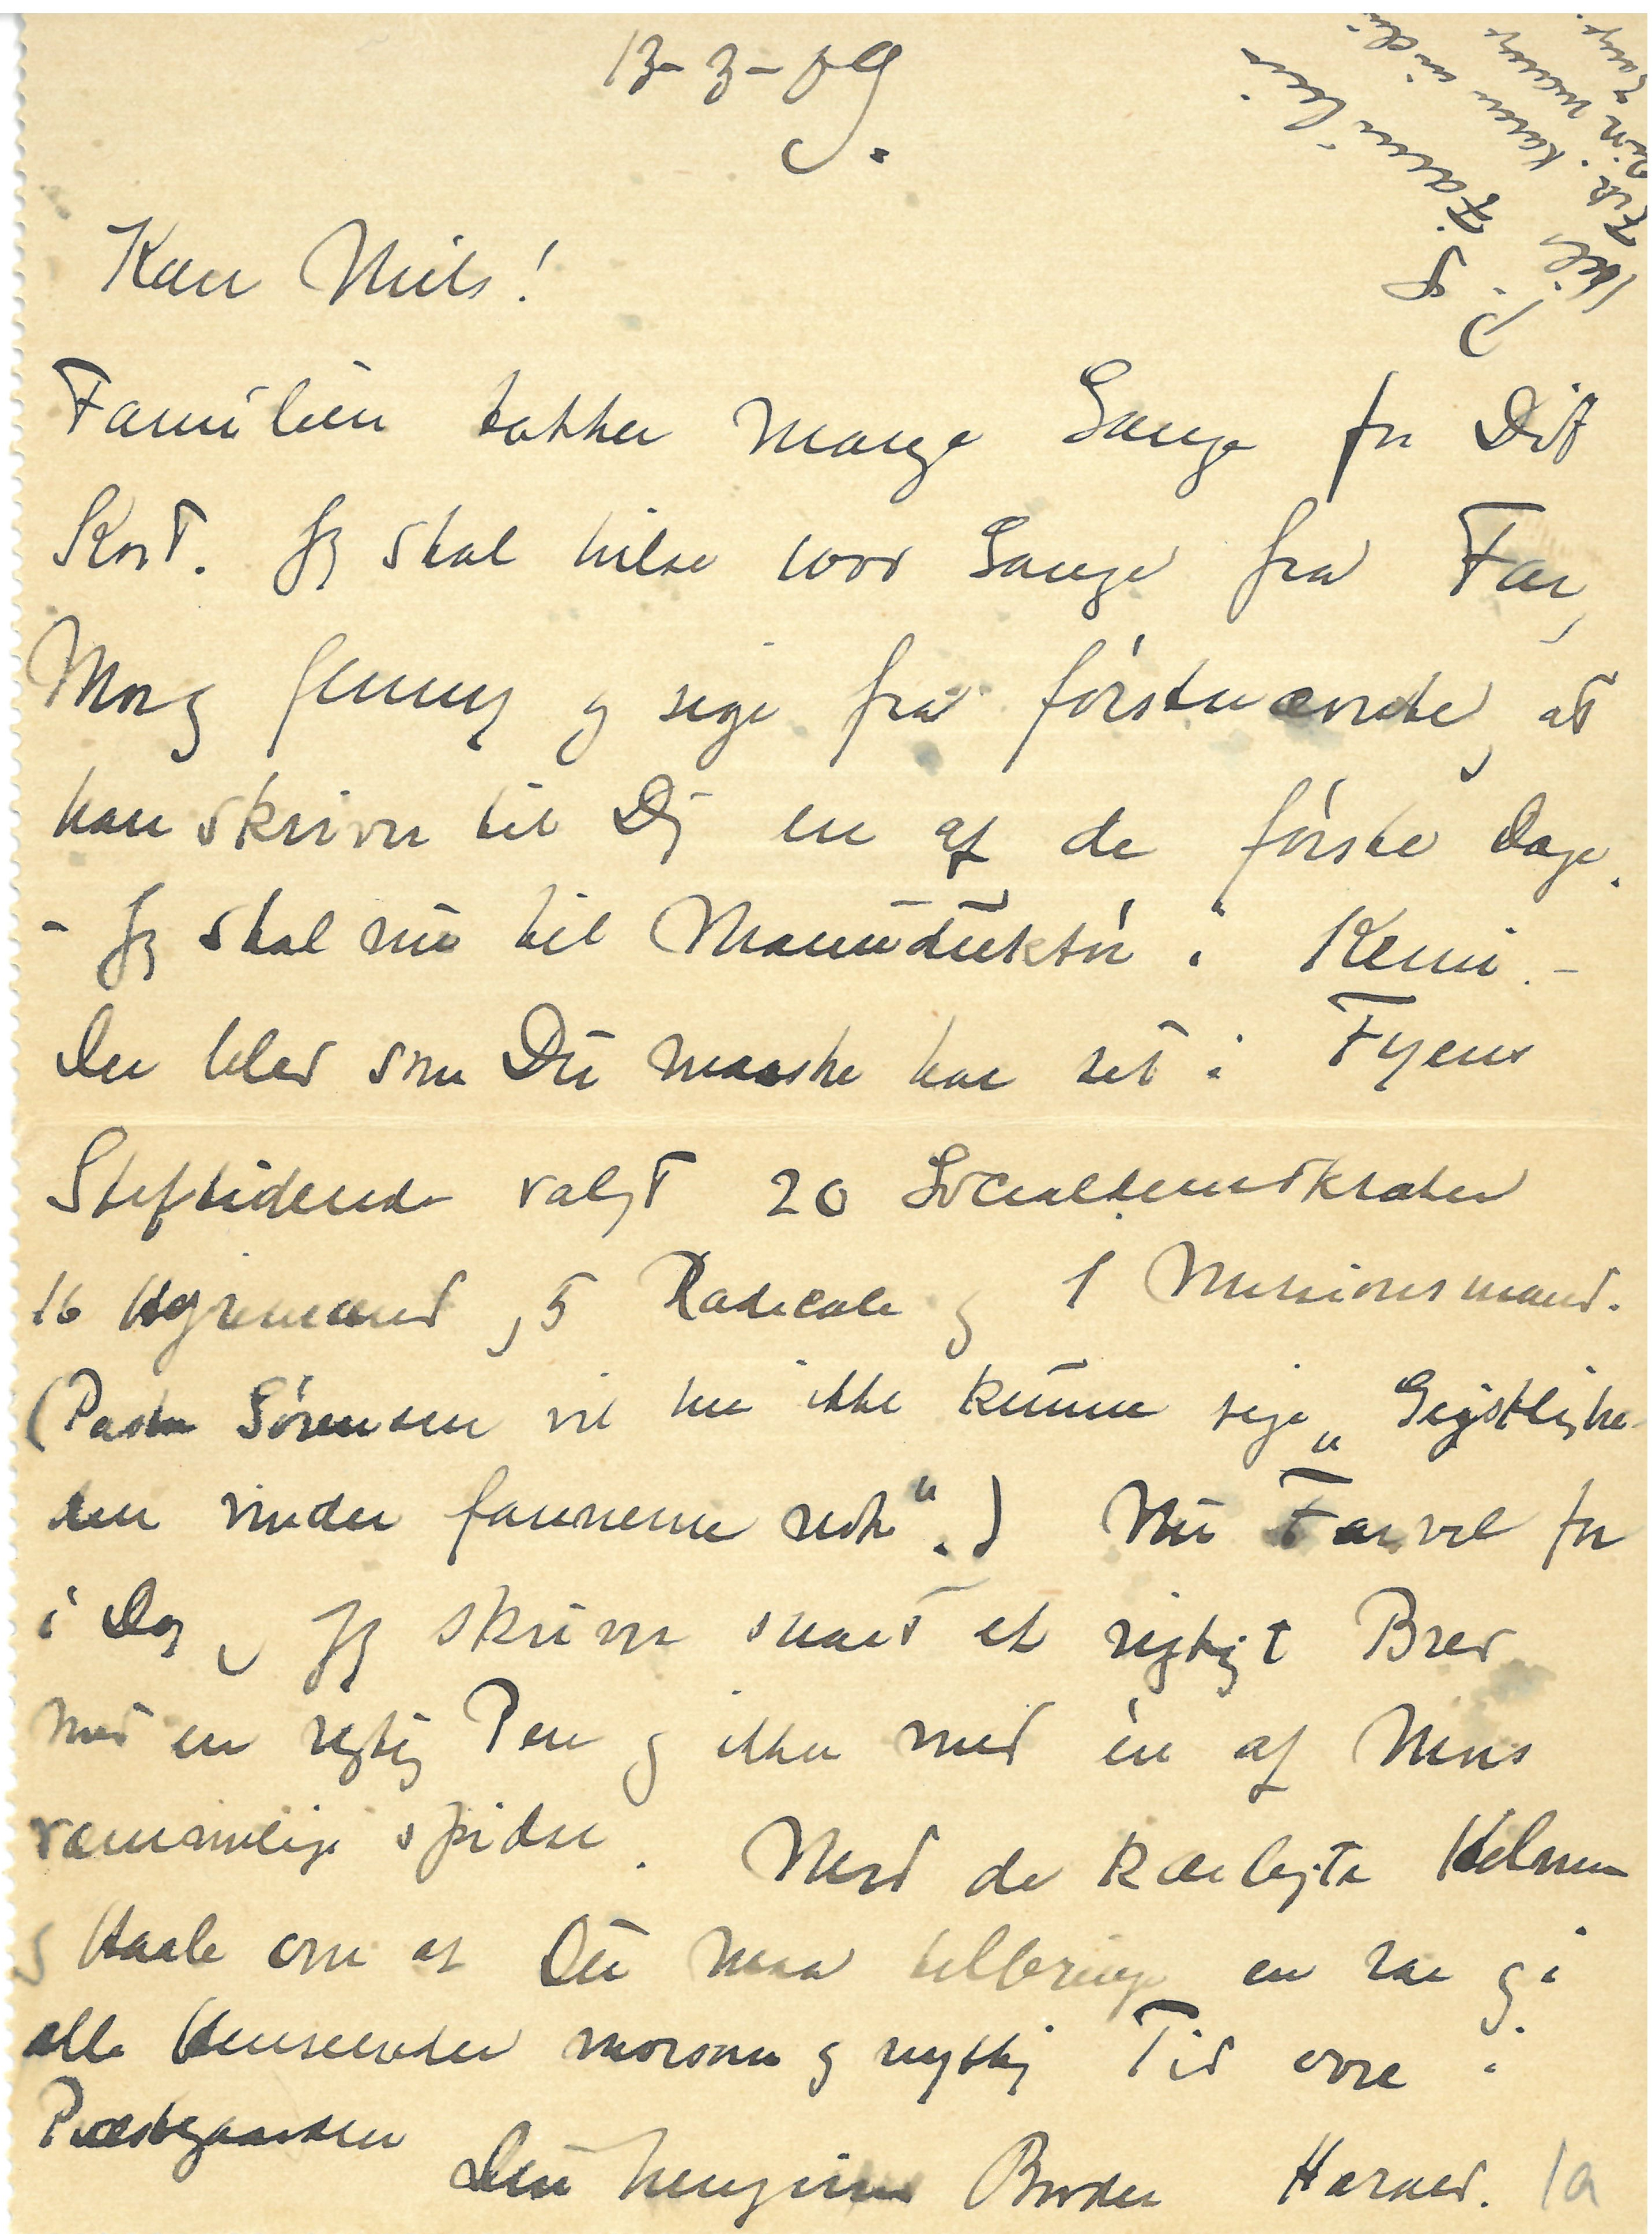 13-3-09.
Kære Niels!
Familien takker mange Gange for Dit
Kort. Jeg skal hilse 1000 Gange fra Far,
Mor og Jenny og sige fra førstnævnte, at
han skriver til Dig en af de første Dage.
- Jeg skal nu til Manuduktør i Kemi. -
Der blev som Du maaske har set i Fyens
Stiftstidende valgt 20 Socialdemokrater
16 Højremænd, 5 Radicale og 1 Missionsmand.
(Pastor Sørensen vil nu ikke kunne sige „Gejstlighe-
den vinder Javnerne nok“.) Nu Farvel for
i Dag, Jeg skriver snart et rigtigt Brev
med en rigtig Pen og ikke med en af Mors
rammelige spidse. Med de kærligste Hilsner
og Haab om at Du maa tilbringe en rar og i
alle Henseender morsom og nyttig Tid ovre i
Præstegaarden
Din hengivne Broder Harald. 1a
P. S. Familien
Hils Fst. Karen
Din mange
Gange.